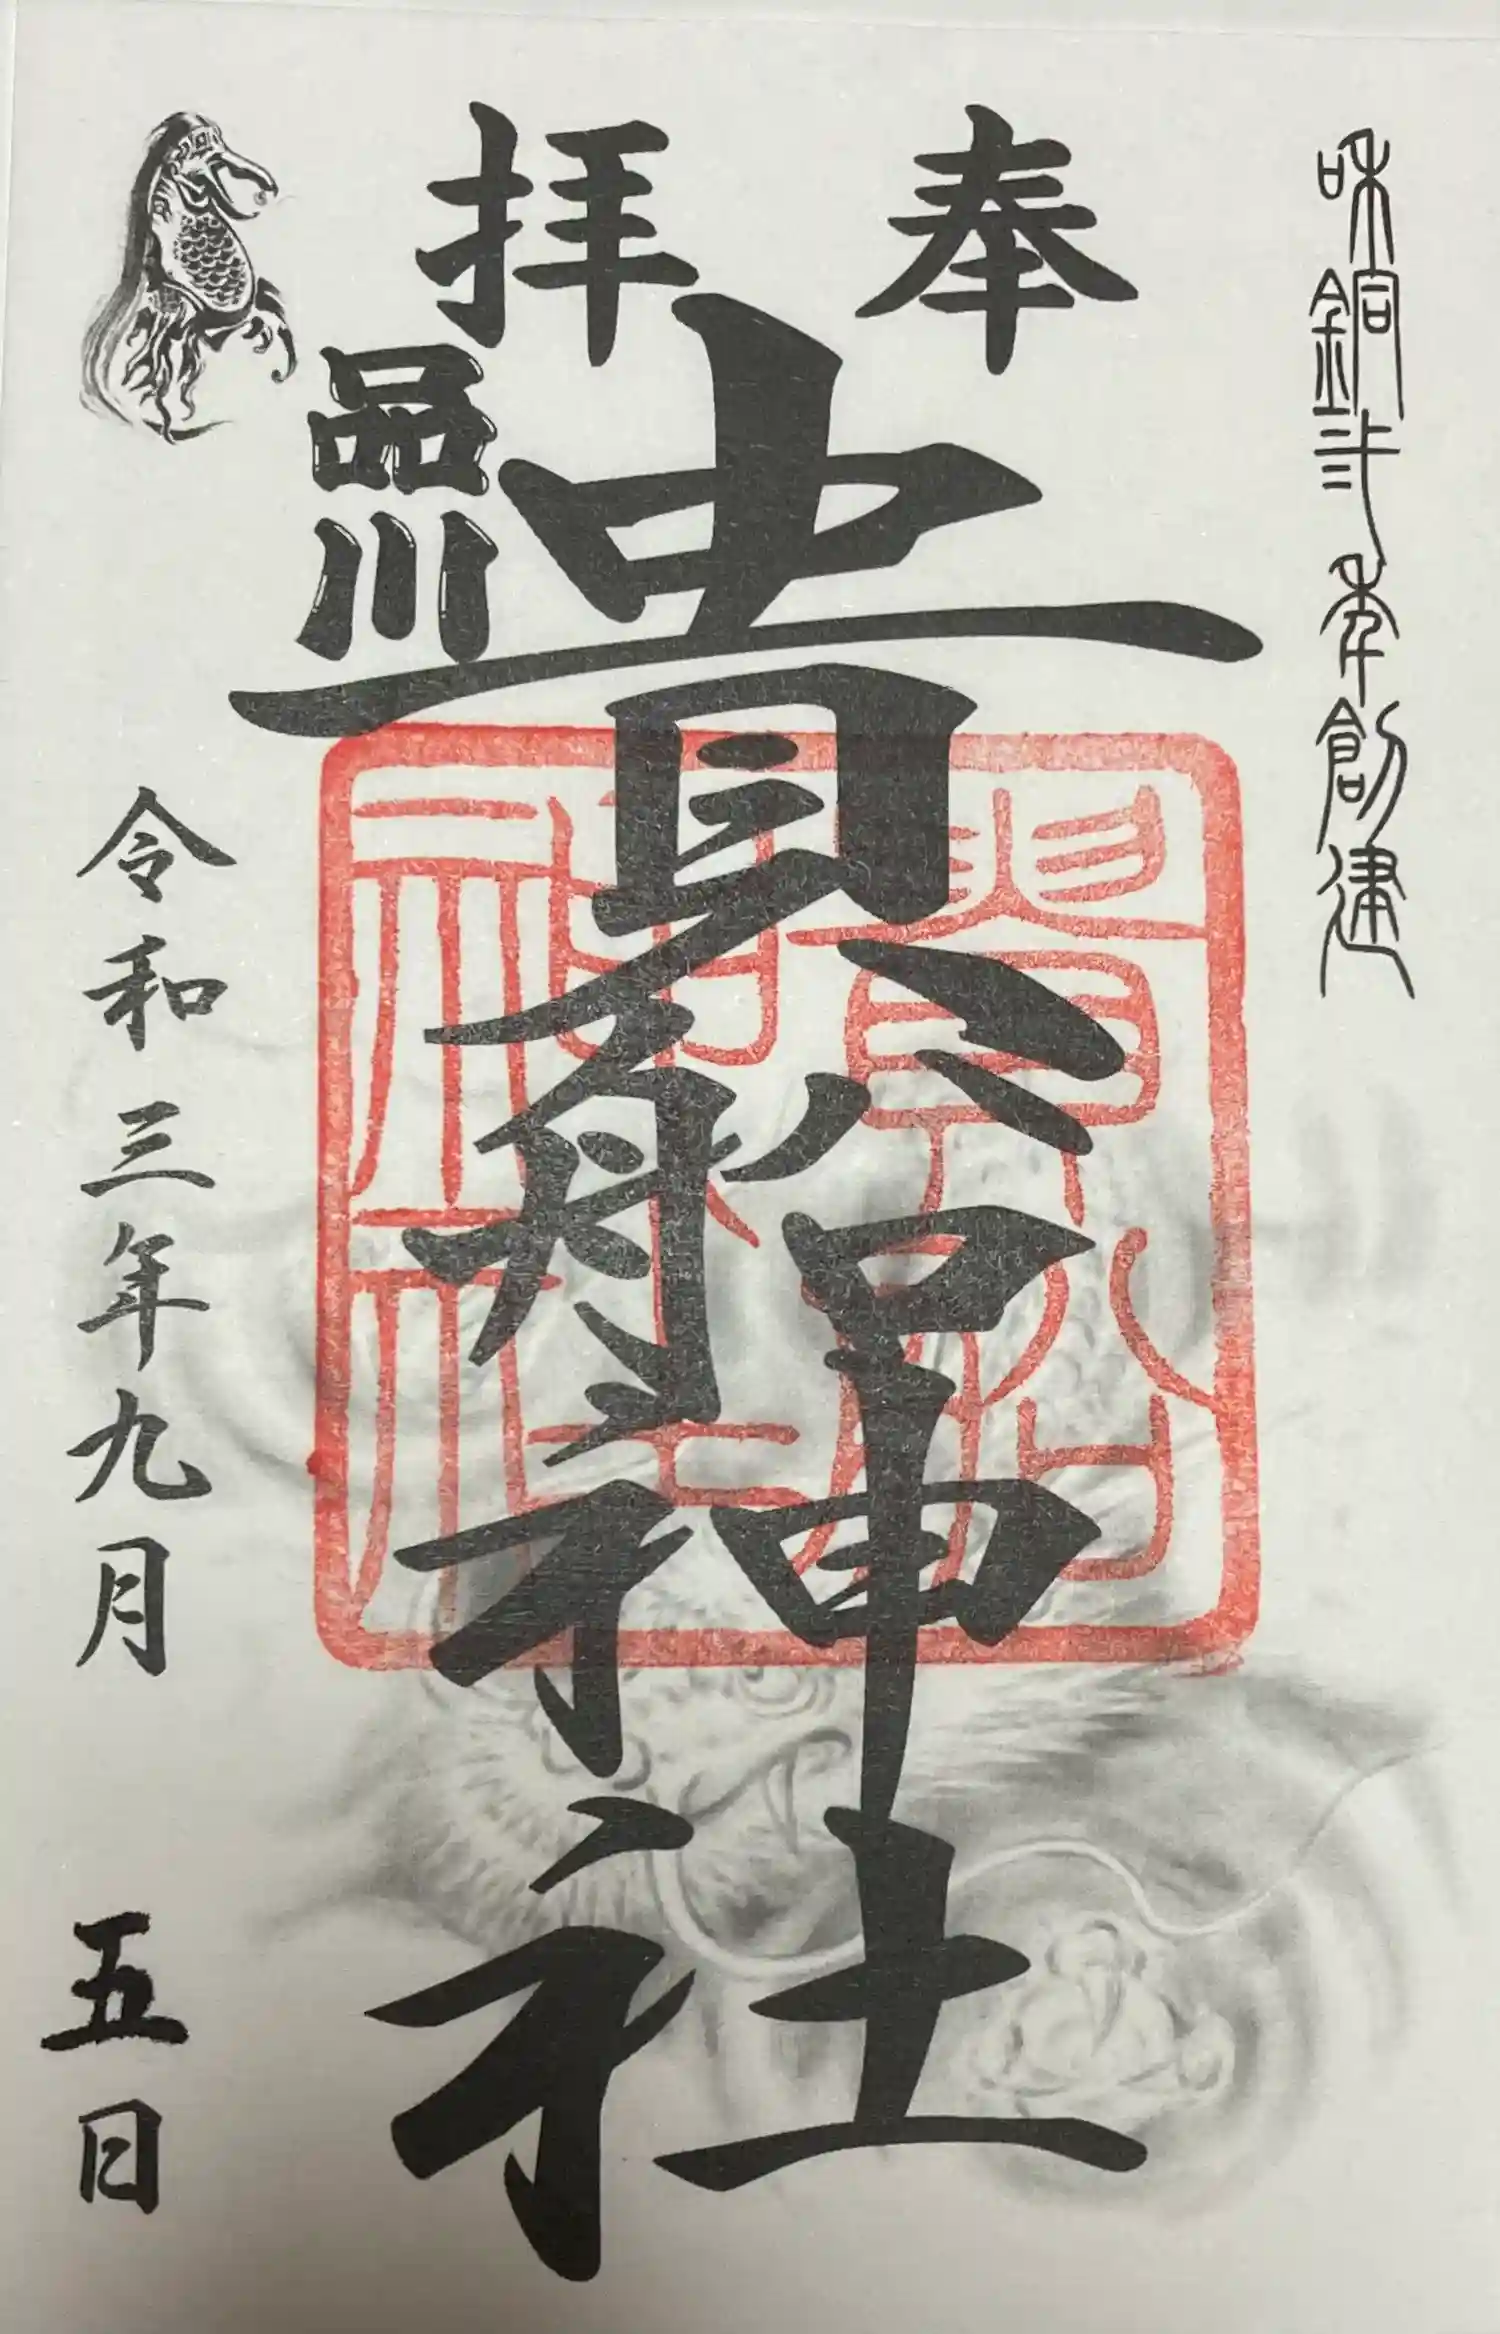 和銅弐年創建
奉拝
品川
貴船神社
貴船
神社
令和三年九月五日